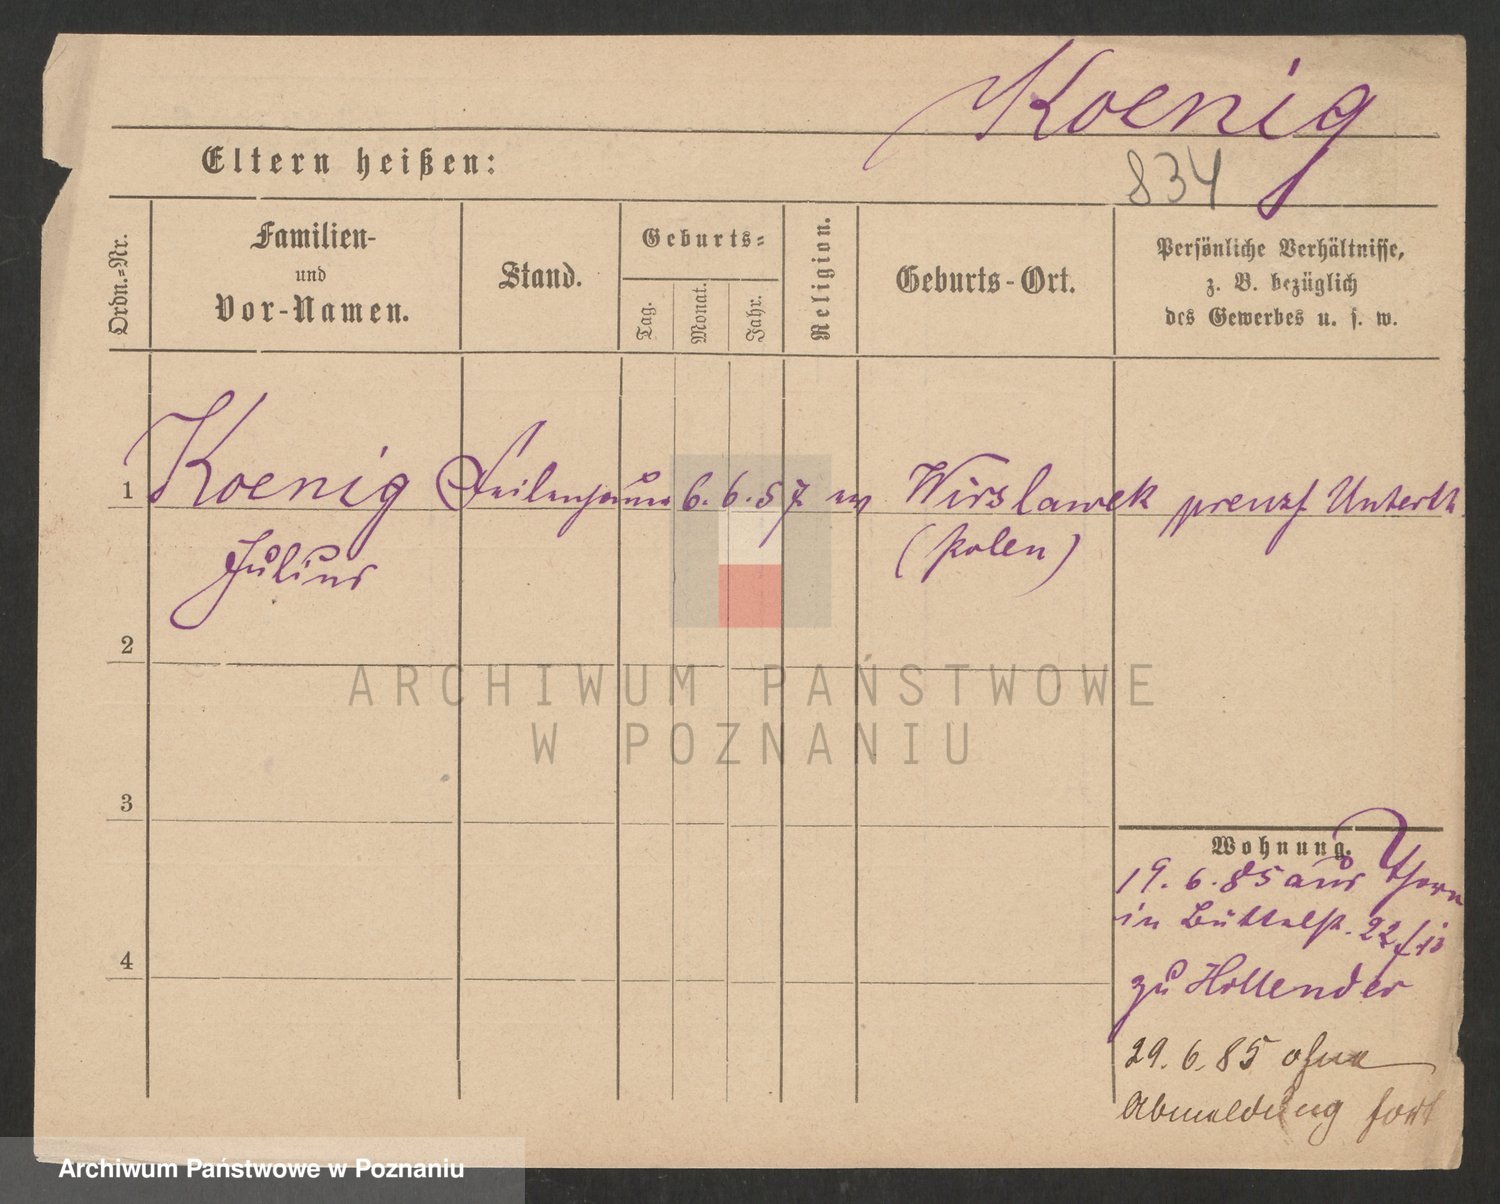 Koenig
Eltern heißen:
834
Ordn.=Nr.
Familien-
und
Vor-Namen.
Stand.
Geburts=
Tag.
Monat.
Jahr.
Religion.
Geburts-Ort.
Persönliche Verhältnisse,
z. B. bezüglich
des Gewerbes u. s. w.
1 Koenig Feilenhauer 6. 6. 57 ev Wirslawek preuss Unterth.
Julius (Polen)
2
ARCHIWUM PAŃSTWOWE
W POZNANIU
3
Wohnung.
19. 6. 85 aus Thorn
in Büttelst. 22
zu Hollender
4
29. 6. 85 ohne
Abmeldung fort
Archiwum Państwowe w Poznaniu